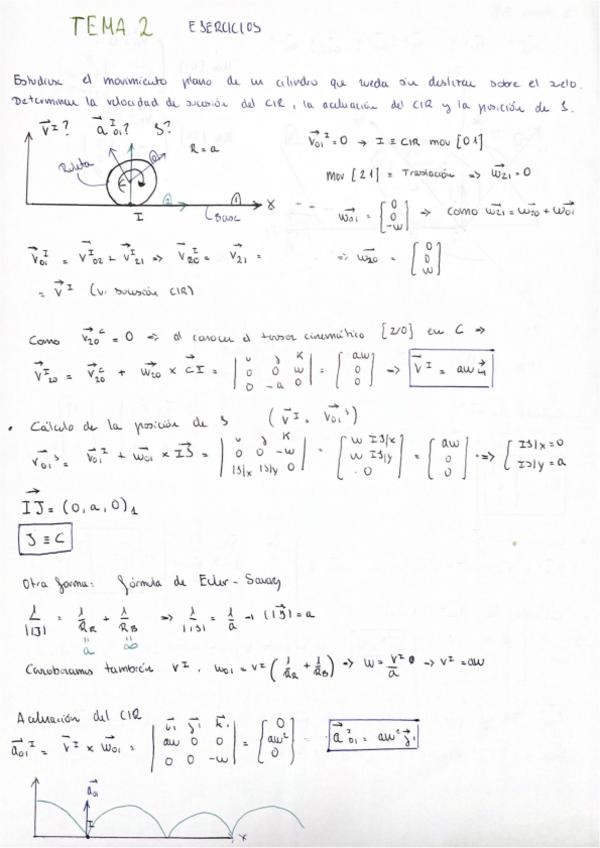 TEMA 2 EJERCICIOS
Estudiar el movimiento plano de un cilindro que rueda sin deslizar sobre el suelo.
Determinar la velocidad de sucesión del CIR, la aceleración del CIR y la posición de J.
v^I? a^I_01? J?
R = a
Ruleta
Base
I
X
v^I_01 = 0 → I ≡ CIR mov [01]
mov [21] = Traslación => w_21 = 0
w_01 = [0 0 -w] => como w_21 = w_20 + w_01
=> w_20 = [0 0 w]
v^I_01 = v^I_02 + v^I_21 => v^I_20 = v_21 =
= v^I (v. sucesión CIR)
Como v^C_20 = 0 => al conocer el tensor cinemático [2/0] en C =>
v^I_20 = v^C_20 + w_20 × CI = |i j k; 0 0 w; 0 -a 0| = [aw 0 0] => v^I = aw i_1
• Cálculo de la posición de J (v^I = v^J_01)
v^J_01 = v^I_01 + w_01 × IJ = |i j k; 0 0 -w; IJ|x IJ|y 0| = [w IJ|x w IJ|y 0] = [aw 0 0] => { IJ|x = 0 IJ|y = a
IJ = (0, a, 0)_1
J ≡ C
Otra forma: fórmula de Euler-Savary
1/|IJ| = 1/R_R + 1/R_B => 1/|IJ| = 1/a → |IJ| = a
a ∞
Corroboramos también v^I. w_01 = v^I (1/R_R + 1/R_B) => w = v^I/a → v^I = aw
Aceleración del CIR
a^I_01 = v^I × w_01 = |i_1 j_1 k_1; aw 0 0; 0 0 -w| = [0 aw² 0] a^I_01 = aw² j_1
a_01
I
x